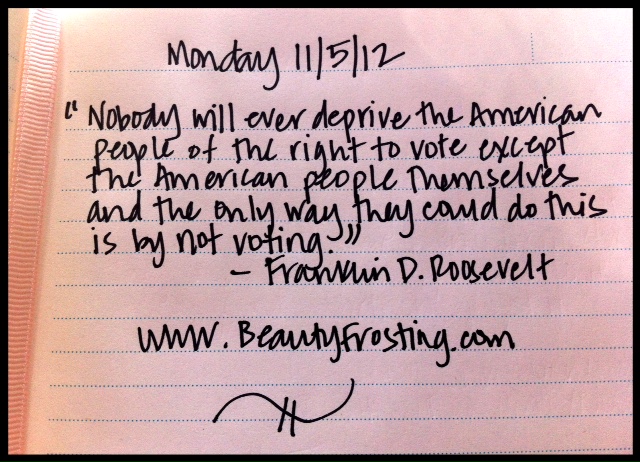 Monday 11/5/12
"Nobody will ever deprive the American
people of the right to vote except
the American people themselves
and the only way they could do this
is by not voting."
- Franklin D. Roosevelt
www.BeautyFrosting.com